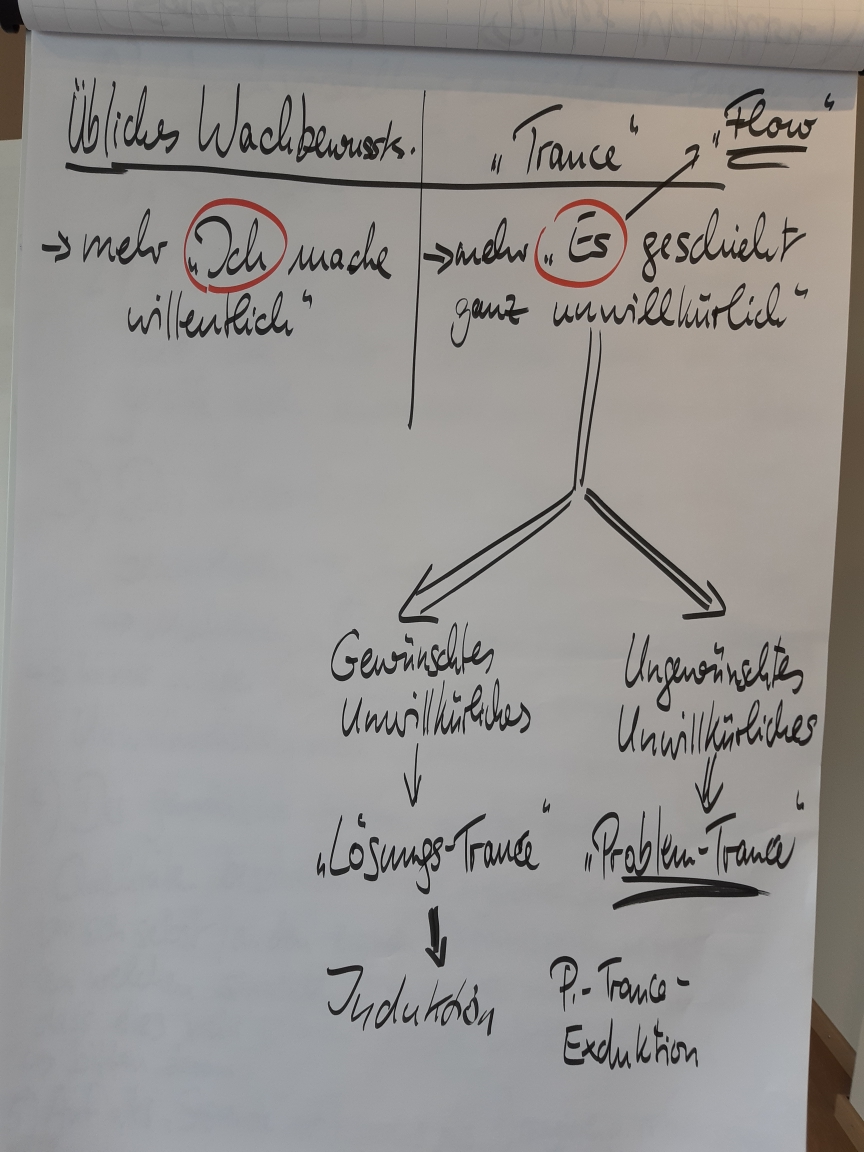 Übliches Wachbewussts.
„Trance“
„Flow“
→ mehr „Ich mache
willentlich“
→ mehr „Es geschieht
ganz unwillkürlich“
Gewünschtes
Unwillkürliches
„Lösungs-Trance“
Induktion
Ungewünschtes
Unwillkürliches
„Problem-Trance“
P.-Trance-
Exduktion